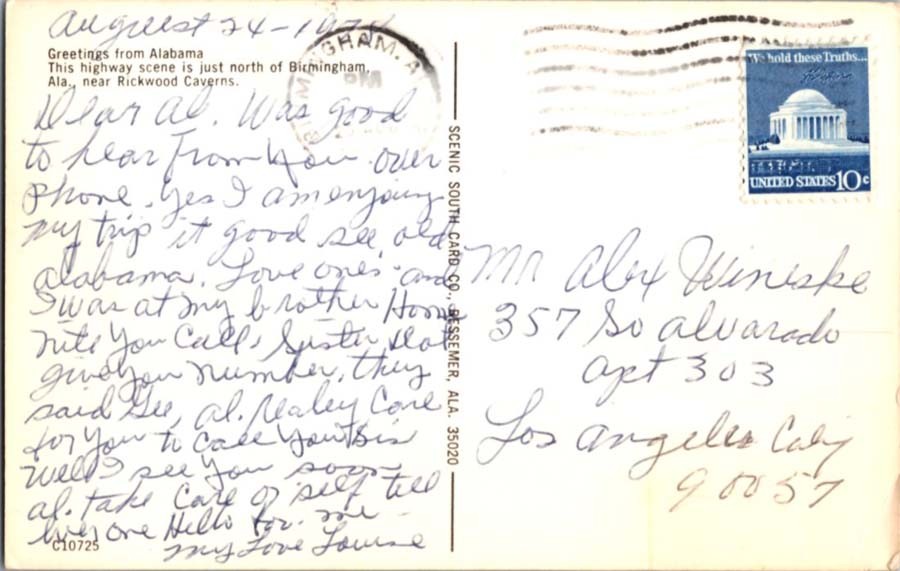 August 24-197
Greetings from Alabama
This highway scene is just north of Birmingham,
Ala., near Rickwood Caverns.
Dear Al. Was good
to hear from you over
phone. Yes I am enjoying
my trip it good see old
alabama. Love ones and
I was at my brother Home
nite you call. Sister Dot
give you number. they
said Gee, Al. Realey Care
for you to call You
Well I see you soon
al. take Care of self tell
every one Hello for me
my Love Louise
C10725
SCENIC SOUTH CARD CO., BESSEMER, ALA. 35020
BIRMINGHAM, A
PM
We hold these Truths...
UNITED STATES 10c
Mr Alex Wineske
357 So Alvarado
Apt 303
Los Angeles Calif
90057